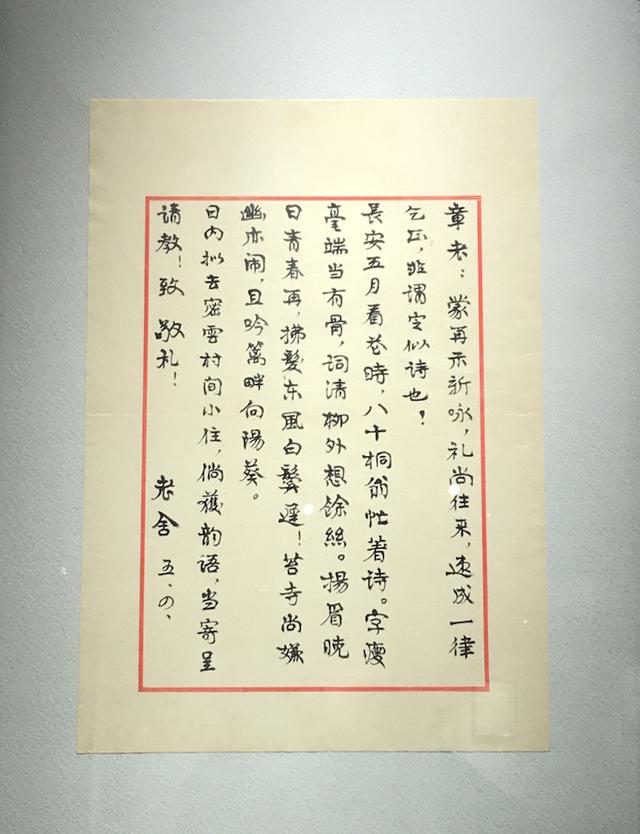 章老：蒙再示新咏，礼尚往来，速成一律
乞正，非谓定似诗也！
長安五月看花時，八十桐翁忙著诗。字瘦
毫端当有骨，词清柳外想馀絲。揚眉晓
日青春再，拂髮东風白鬓遲！苔寺尚嫌
幽亦闹，且吟篱畔向陽葵。
日内拟去密雲村间小住，倘獲韵语，当寄呈
请教！致 敬礼！
老舍 五、の、